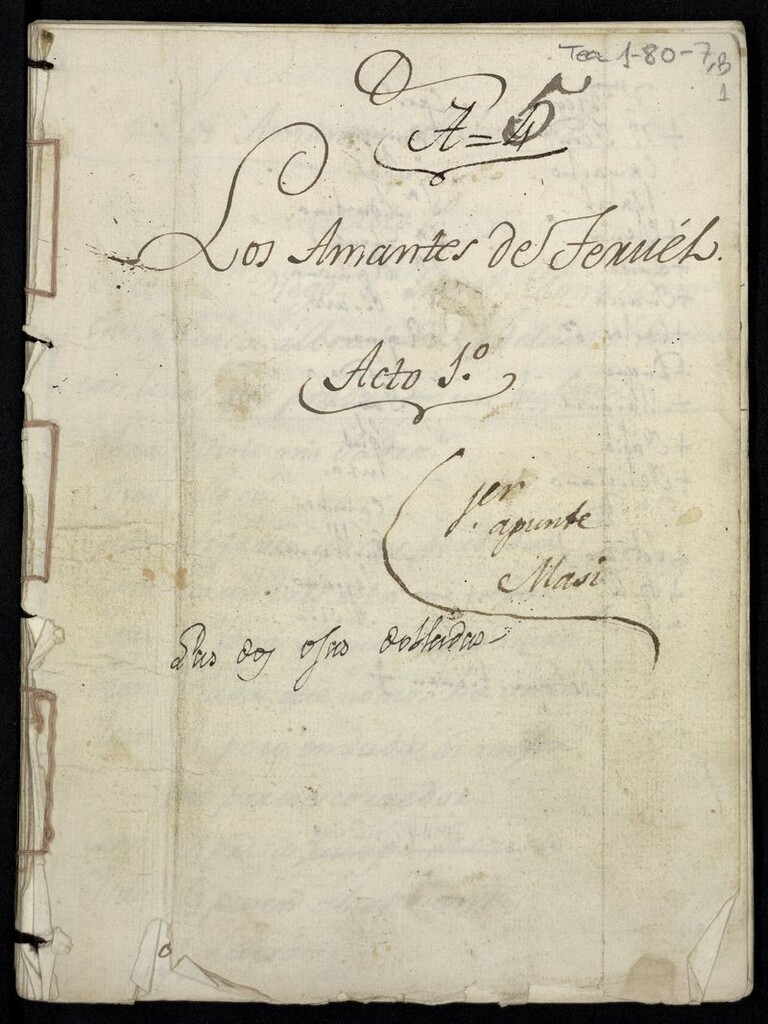 Tea 1-80-7, B
1
A=5
Los Amantes de Teruél.
Acto 1.º
1.er
apunte
Masi
Las dos ojas dobladas